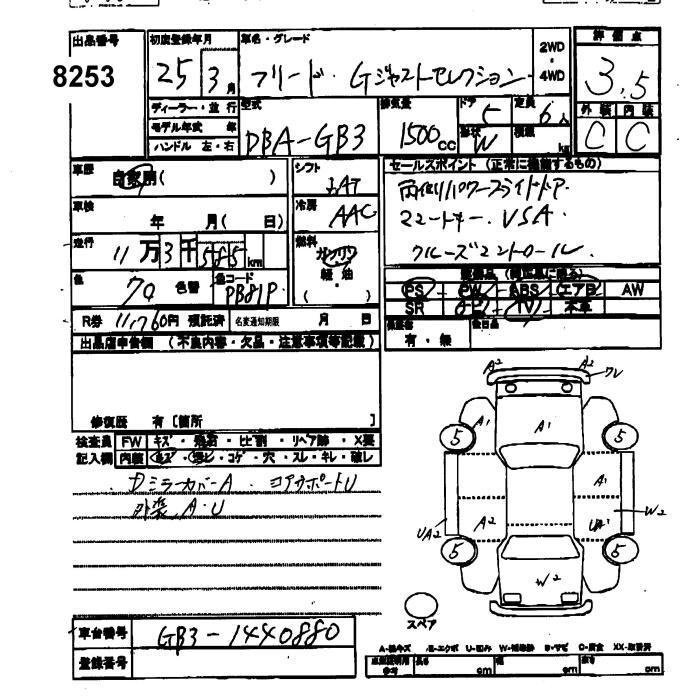 出品番号 8253
初度登録年月 25 3月
車名・グレード フリード Gジャストセレクション
2WD・4WD
評価点 3.5
外装 内装 C C
ディーラー・並行
モデル年式 年
ハンドル 左・右
型式 DBA-GB3
排気量 1500cc
ドア 5
形状 W
定員 6人
積載 kg
車歴 自家用( )
シフト
車検 年 月( 日)
冷房 AAC
走行 11万3千585km
燃料 ガソリン 軽・油 ( )
色 色替
色コード PB81P
R券 11,760円 預託済 名変通知期限 月 日
セールスポイント(正常に機能するもの)
両側パワースライドドア.
コートキー. VSA.
クルーズコントロール
PS PW ABS エアB AW
SR ナビ TV 本革
有・無
出品店申告欄 (不良内容・欠品・注意事項等記載)
修復歴 有 [箇所 ]
検査員 FW キズ・飛石・ヒ割・リペア跡・X要
記入欄 内装 キズ・汚レ・コゲ・穴・スレ・キレ・破レ
Dミラーカバー A コアサポート U
外装 A・U
A2 A2 ワレ
A1 A1
5 5
A1
W2
UA2 A2 UA1
5 5
W2
スペア
車台番号 GB3-1440880
登録番号
A-線キズ E-エクボ U-凹み W-補修跡 S-サビ C-腐食 XX-取替済
cm cm cm